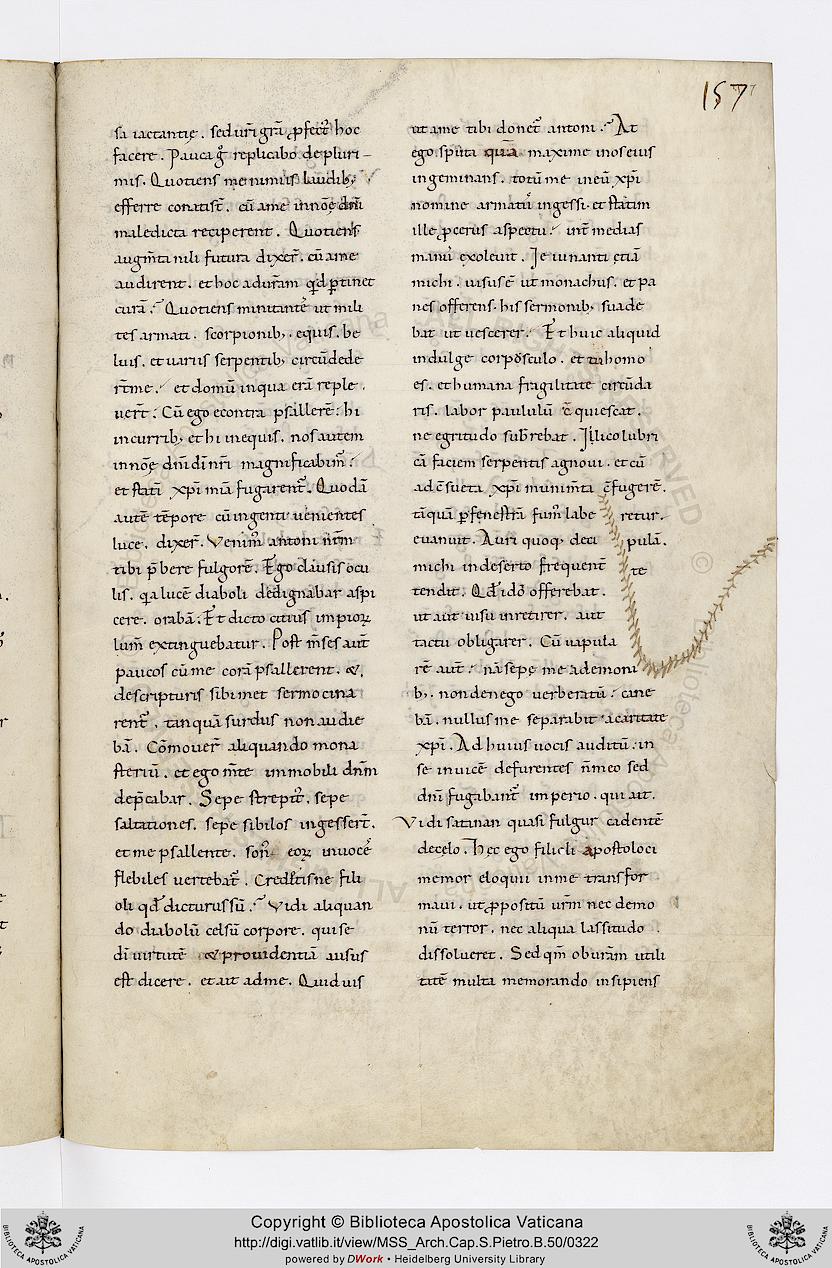 157
sa iactantię. sed ur̄i gr̄a ꝓfect᷒ hoc
facere. Pauca g̊ replicabo de pluri-
mis. Quotiens me nimiis laudib;
efferre conatist̄. cū a me in nōe dn̄i
maledicta reciperent. Quotiens
augm̄ta nili futura dixer̄. cū a me
audirent. et hoc ad ur̄am qd̄ ꝑtinet
curā? Quotiens minitantē ut mili
tes armati. scorpionib;. equis. be
luis. et variis serpentib; circūdede
rt̄ me. et domū in qua erā reple
uert̄: Cū ego econtra psallerē: hi
in currib; et hi in equis. nos autem
in nōe dn̄i dī nr̄i magnificabim᷒.
et statī xp̄i mīa fugarent᷒. Quodā
autē tēpore cū ingenti uenientes
luce. dixer̄. Venim᷒ antoni nr̄m
tibi p̄bere fulgorē. Ego clausis ocu
lis. q̄a lucē diaboli dedignabar aspi
cere. orabā. Et dicto citius impioꝝ
lum̄ extinguebatur. Post m̄ses aut̄
paucos cū me corā psallerent. &
de scripturis sibimet sermocina
rent᷒. tanquā surdus non audie
bā. Cōmouer̄ aliquando mona
steriū. et ego m̄te immobili dn̄m
dep̄cabar. Sepe strepit᷒. sepe
saltationes. sepe sibilos ingessert̄.
et me psallente. son᷒ eoꝝ in uocē
flebiles uertebat᷒. Creditisne fili
oli qd̄ dicturus sū? Vidi aliquan
do diabolū celsū corpore. qui se
dī uirtutē & prouidentiā ausus
est dicere. et ait ad me. Quid uis
ut a me tibi donet᷒ antoni? At
ego sputa quā maxime in os eius
ingeminans. totū me in eū xp̄i
nomine armatū ingessi. et statim
ille ꝓcerus aspectu. int̄ medias
man᷒ exoleuit. Ieiunanti etiā
michi. uisus ē ut monachus. et pa
nes offerens. his sermonib; suade
bat ut uescerer. Et huic aliquid
indulge corpusculo. et tu homo
es. et humana fragilitate circūda
ris. labor paululū c̄quiescat.
ne egritudo subrebat. Ilico lubri
cā faciem serpentis agnoui. et cū
ad c̄sueta xp̄i munim̄ta c̄fugerē.
tāquā ꝑ fenestrā fum᷒ labe retur.
euanuit. Auri quoq; deci pulā.
michi in deserto frequent᷒ te
tendit. Qd̄ idō offerebat.
ut aut uisu inretirer. aut
tactu obligarer. Cū uapula
rē aut̄. nā sepę me a demoni
b;. non denego uerberatū: cane
bā. nullus me separabit a caritate
xp̄i. Ad huius uocis auditū. in
se inuicē defurentes n̄ meo sed
dn̄i fugabant᷒ imperio. qui ait.
Vidi satanan quasi fulgur cadentē
de cęlo. Hęc ego filioli apostoloci
memor eloquii in me transfor
maui. ut ꝓpositū ur̄m nec demo
nū terror. nec aliqua lassitudo
dissolueret. Sed qm̄ ob ur̄am utili
tatē multa memorando insipiens
Copyright © Biblioteca Apostolica Vaticana
http://digi.vatlib.it/view/MSS_Arch.Cap.S.Pietro.B.50/0322
powered by DWork • Heidelberg University Library